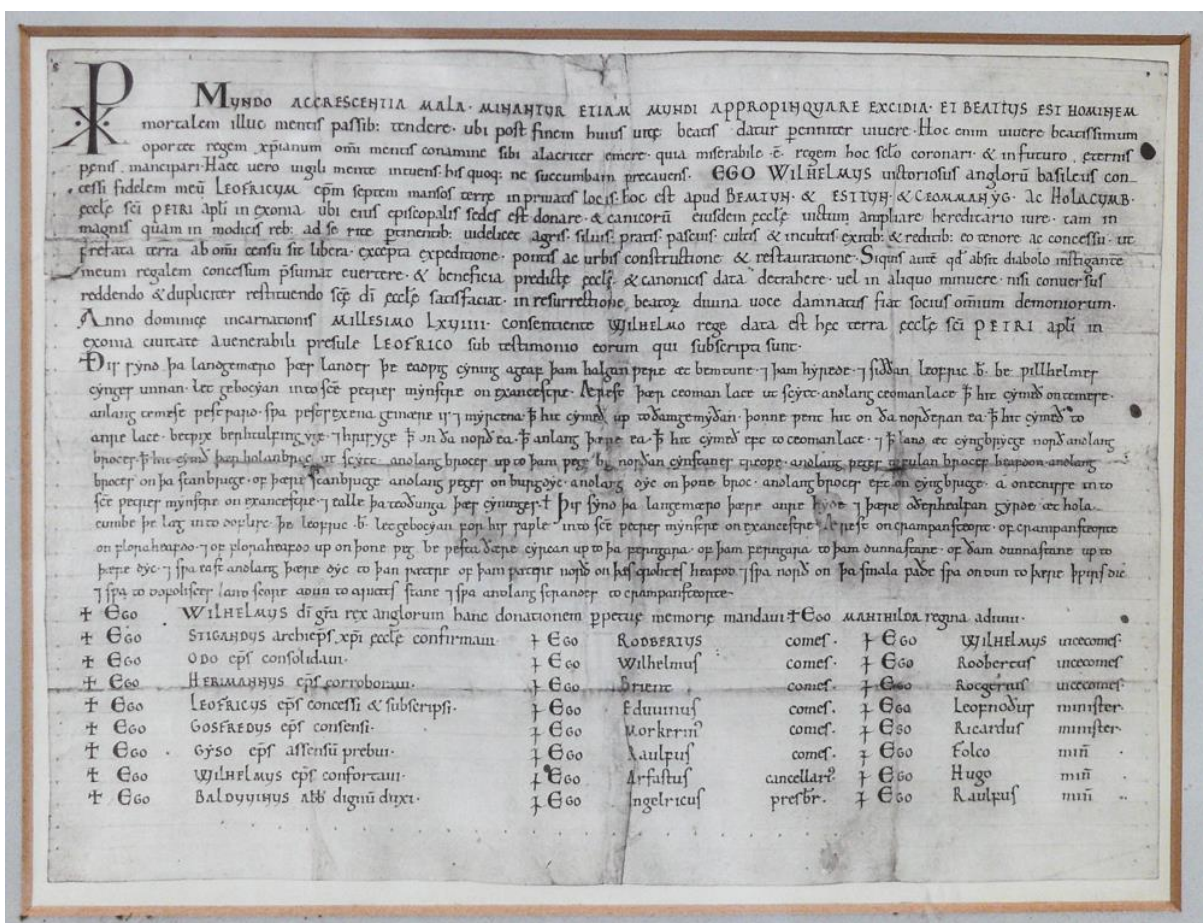 MUNDO ACCRESCENTIA MALA · MINANTUR ETIAM MUNDI APPROPINQUARE EXCIDIA · ET BEATIUS EST HOMINEM
mortalem illuc mentis passib; tendere · ubi post finem huius uitę beatis datur penniter uiuere · Hoc enim uiuere beatissimum
oportet regem xp̄ianum omī mentis conamine sibi alacriter emere · quia miserabile · ē · regem hoc sc̄lo coronari · & in futuro ęternis
pęnis mancipari · Haec uero uigili mente intuens · his quoq; ne succumbam precauens · EGO WILHELMUS uictoriosus anglorū basileus con
cessi fidelem meū LEOFRICUM ep̄m septem mansos terre in priuatis locis · hoc est apud BEMTUN · & ESTTUN · & CEOMMANYG · Ac HOLACUMB ·
ęccłę sc̄i PETRI apl̄i in exonia ubi eius episcopalis sedes est donare · & canicorū eiusdem ęccłę uictum ampliare hereditario iure · tam in
magnis quam in modicis reb; ad se rite ptinentib; uidelicet agris · siluis · pratis · pascuis · cultis & incultis exitib; & reditib; eo tenore ac concessu · ut
prefata terra ab omī censu sit libera · excepta expeditione · pontis ac urbis constructione & restauratione · Siquis autē qđ absit diabolo instigante
meum regalem concessum p̄sumat euertere · & beneficia predictę ęccłę & canonicis data detrahere · uel in aliquo minuere · nisi conuersus
reddendo & dupliciter restituendo sc̄ę dī ęccłę satisfaciat · in resurrectione beatoꝝ diuina uoce damnatus fiat socius omīum demoniorum ·
Anno dominicę incarnationis MILLESIMO LXVIIII · consentiente WILHELMO rege data est hęc terra ęccłę sc̄i PETRI apl̄i in
exonia ciuitate auenerabili presule LEOFRICO sub testimonio eorum qui subscripti sunt ·
Ðis sẏnd þa landgemęro þæs landes þe eadƿig cẏning ageaf þam halgan ƿere æt bemtune · ⁊ þam hẏrede · ⁊ siððan leofric · b̄ · be ƿillhelmes
cẏnges unnan · let gebocẏan into sc̄e petres mẏnstre on exancestre · Ærest þær ceoman lace ut scẏtt · andlang ceomanlace ꝥ hit cẏmeð on temese ·
anlang temese ꝥ hit cẏmeð up to ðamgemẏðan · þonne ƿent hit on ða norðeran ea · ꝥ hit cẏmeð to
anre lace · betƿix on ða norð ea · ꝥ anlang þære ea · ꝥ hit cẏmeð eft to ceomanlace · ⁊ ꝥ land æt cẏngbrẏcge norð anlang
broces · ꝥ hit cẏmð þær ut scẏtt · anolang broces up to þam ƿege be norðan cẏnstanes treoƿe · anolang ƿeges to fulan broces heafdon · anolang
broces on þa stanbrucge · of þære stanbrucge anolang ƿeges on burgdẏc · anolang dẏc on þone broc · anolang broces eft on cẏngbrucge · a onecnisse into
sc̄e petres mẏnstre on exancestre · ⁊ ealle þa teoðunga þæs cẏninges · † Ðis sẏno þa langemæro þære anre hẏde ⁊ þære oðerhealfan gẏrde æt hola
cumbe þe læg into doflisc þe leofric · b̄ · let gebocẏan for his saƿle into sc̄e petres mẏnstre on exancestre · Ærest on crampansteorte · of crampansteorte
on floriaheafdo · ⁊ of floriaheafdo up on þone ƿeg be ƿesta ðære cẏrcan up to þa feringara · of þam feringara to þam dunnastane · of ðam dunnastane up to
þære dẏc · ⁊ sƿa east anolang þære dẏc to þan of þam norð on heafod · ⁊ sƿa norð on þa smala pæðe sƿa on dun to þære
⁊ sƿa to doflisces land score adun to stane ⁊ sƿa anolang stranoes to crampansteorte ·
✝ EGO WILHELMUS dī gr̄a rex anglorum hanc donationem ppetuę memorię mandaui · ✝ EGO MAHTHILDA regina adiuui ·
✝ EGO STIGANDUS archiep̄s xp̄i ęccłę confirmaui · ✝ EGO RODBERTUS comes · ✝ EGO WILHELMUS uicecomes ·
✝ EGO ODO ep̄s consolidaui · ✝ EGO Wilhelmus comes · ✝ EGO Roobertus uicecomes
✝ EGO HERIMANNUS ep̄s corroboraui · ✝ EGO Brient comes · ✝ EGO Rocgerius uicecomes
✝ EGO LEOFRICUS ep̄s concessi & subscripsi · ✝ EGO Eduuinus comes · ✝ EGO Leofnoðus minister ·
✝ EGO GOSFREDUS ep̄s consensi · ✝ EGO Morkerin⁹ comes · ✝ EGO Ricardus minister ·
✝ EGO GYSO ep̄s assensū prebui · ✝ EGO Raulfus comes · ✝ EGO Folco min̄ ·
✝ EGO WILHELMUS ep̄s confortaui · ✝ EGO Arfastus cancellari⁹ · ✝ EGO Hugo min̄ ·
✝ EGO BALDUUINUS abb̄ dignū duxi · ✝ EGO Ingelricus presbr̄ · ✝ EGO Raulfus min̄ ·